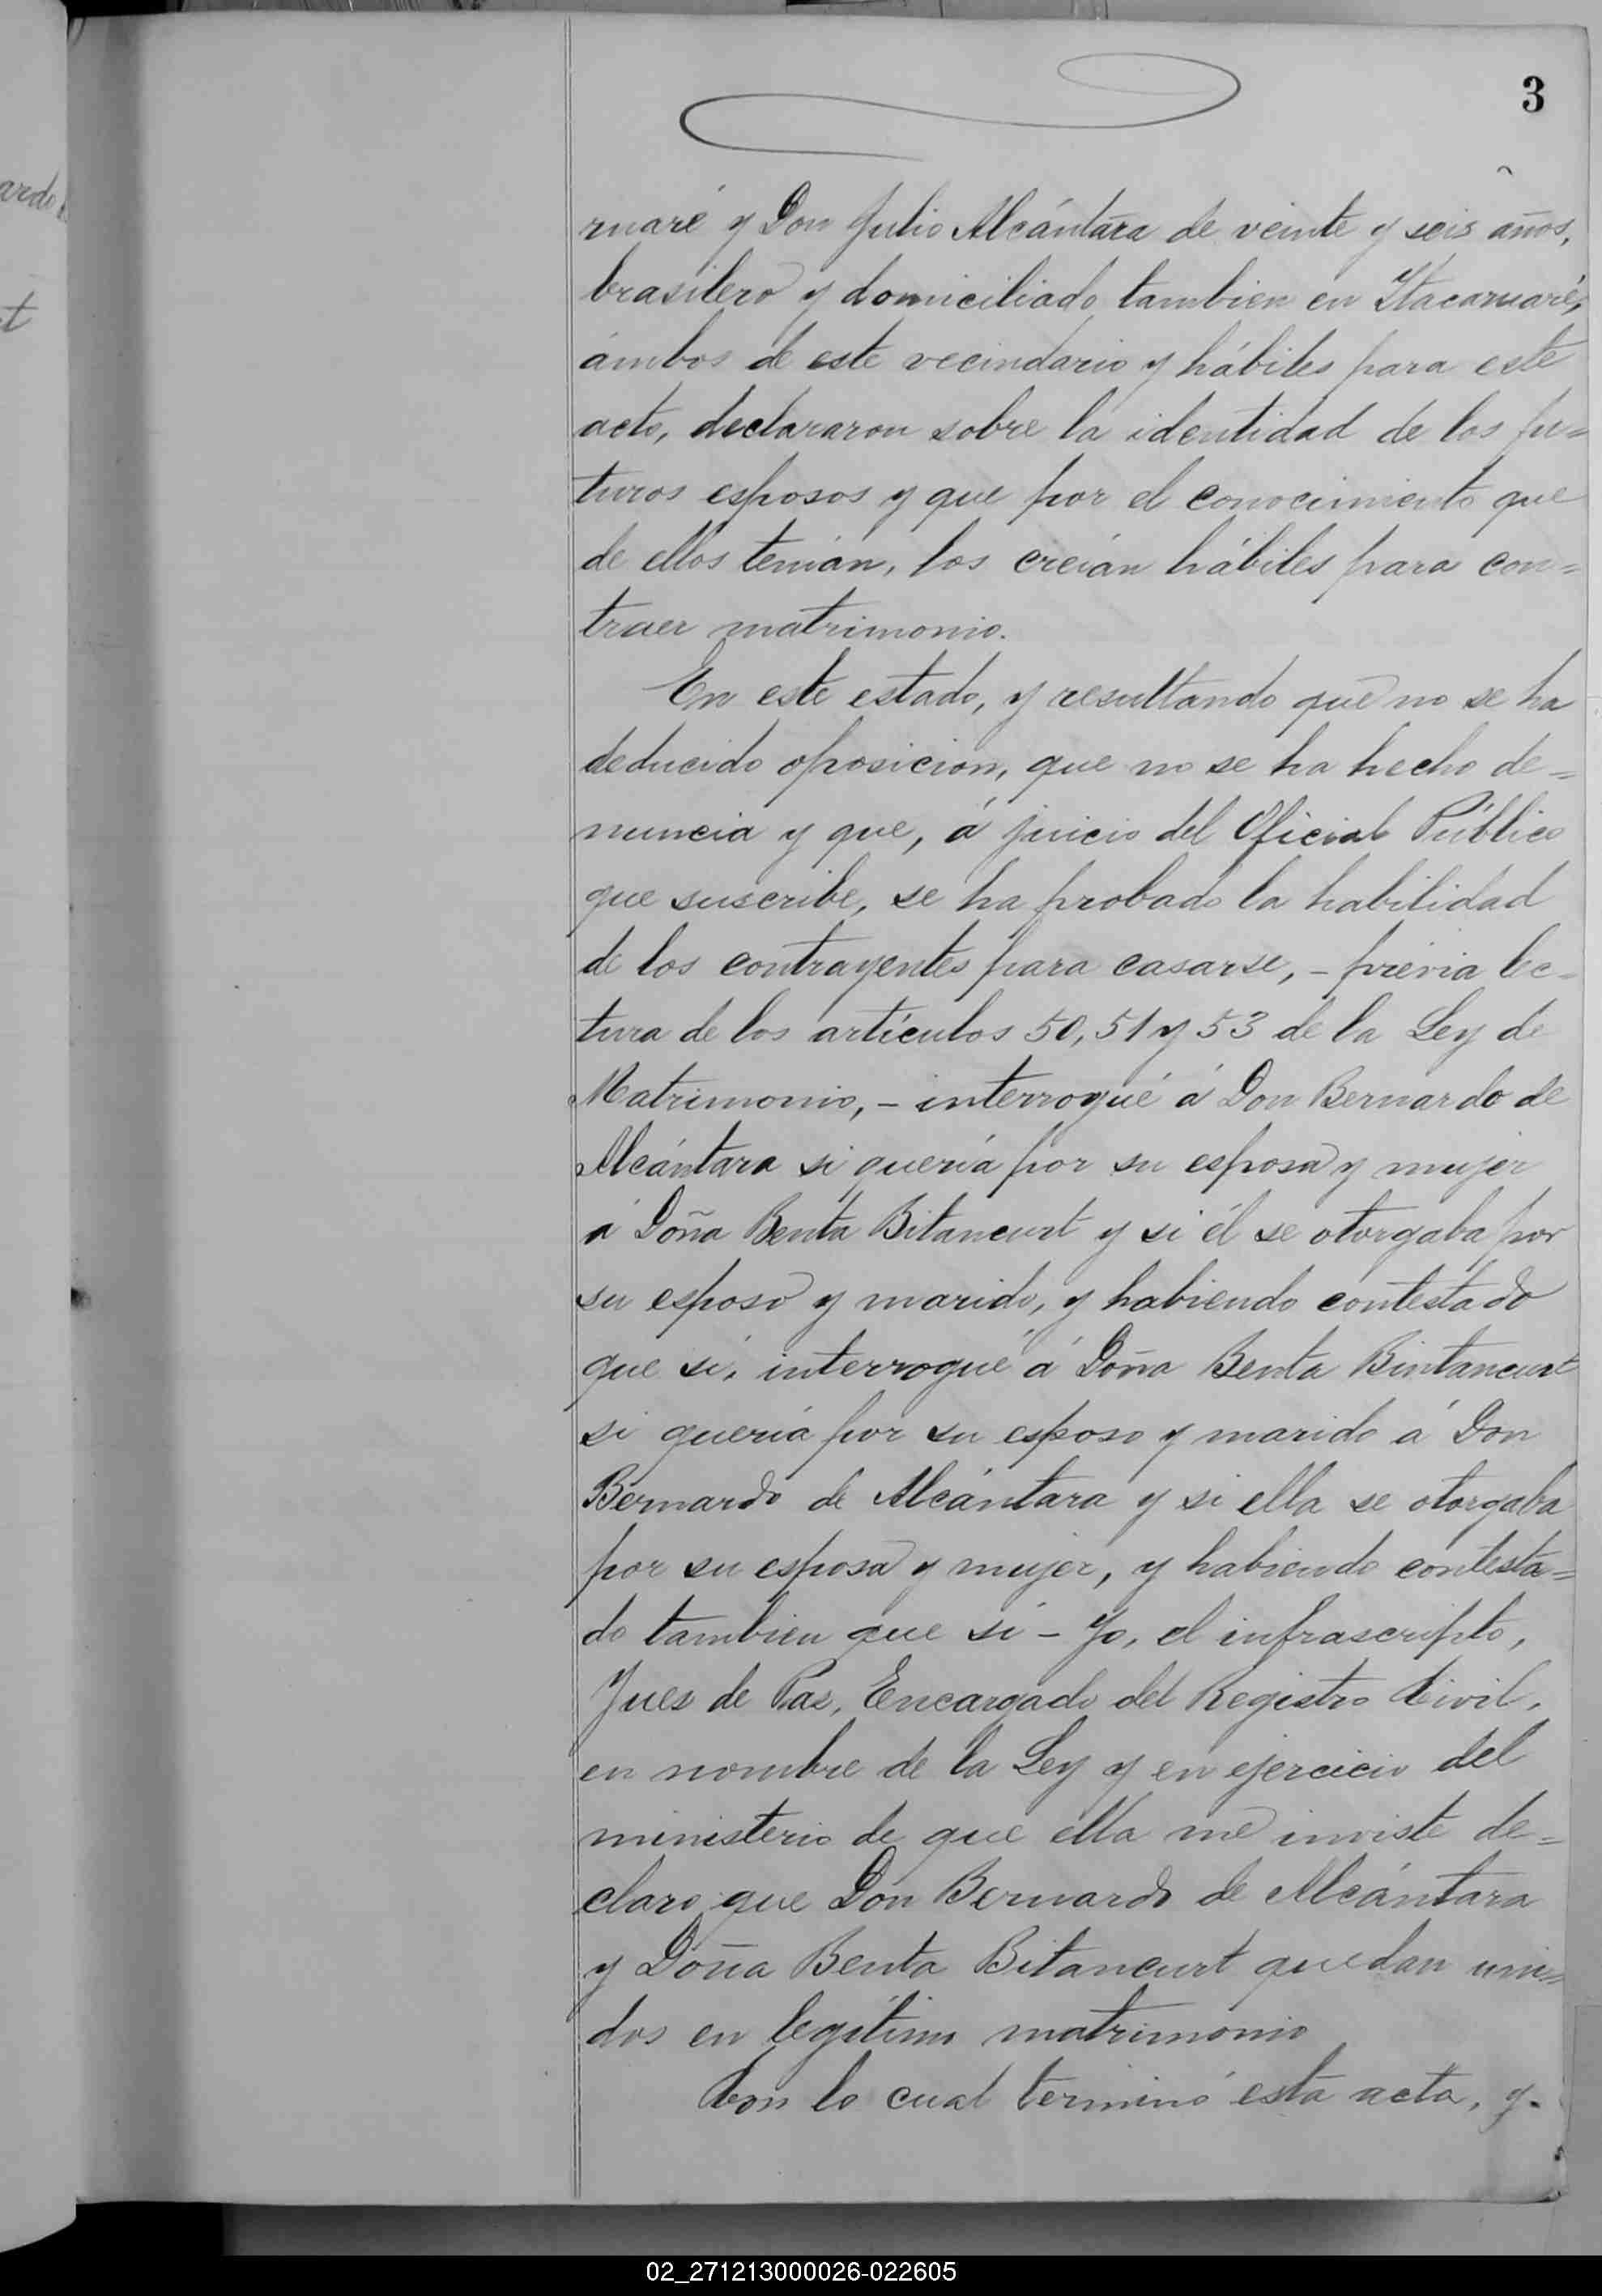 ardo
t
3
ruaré y Don Julio Alcántara de veinte y seis años,
brasilero y domiciliado tambien en Itacaruaré,
ámbos de este vecindario y hábiles para este
acto, declararon sobre la identidad de los fu=
turos esposos y que por el conocimiento que
de ellos tenían, los creían hábiles para con=
traer matrimonio.
En este estado, y resultando que no se ha
deducido oposicion, que no se ha hecho de=
nuncia y que, á juicio del Oficial Público
que suscribe, se ha probado la habilidad
de los contrayentes para casarse, - prévia lec=
tura de los artículos 50, 51 y 53 de la Ley de
Matrimonio, - interrogué á Don Bernardo de
Alcántara si quería por su esposa y mujer
á Doña Benta Bitancurt y si él se otorgaba por
su esposo y marido, y habiendo contestado
que sí, interrogué á Doña Benta Bintancurt
si quería por su esposo y marido á Don
Bernardo de Alcántara y si ella se otorgaba
por su esposa y mujer, y habiendo contesta=
do tambien que sí - Yo, el infrascripto,
Jues de Pas, Encargado del Registro Civil,
en nombre de la Ley y en ejercicio del
ministerio de que ella me inviste de=
claro que Don Bernardo de Alcántara
y Doña Benta Bitancurt quedan uni=
dos en legítimo matrimonio
Con lo cual terminó esta acta, y-
02_271213000026-022605